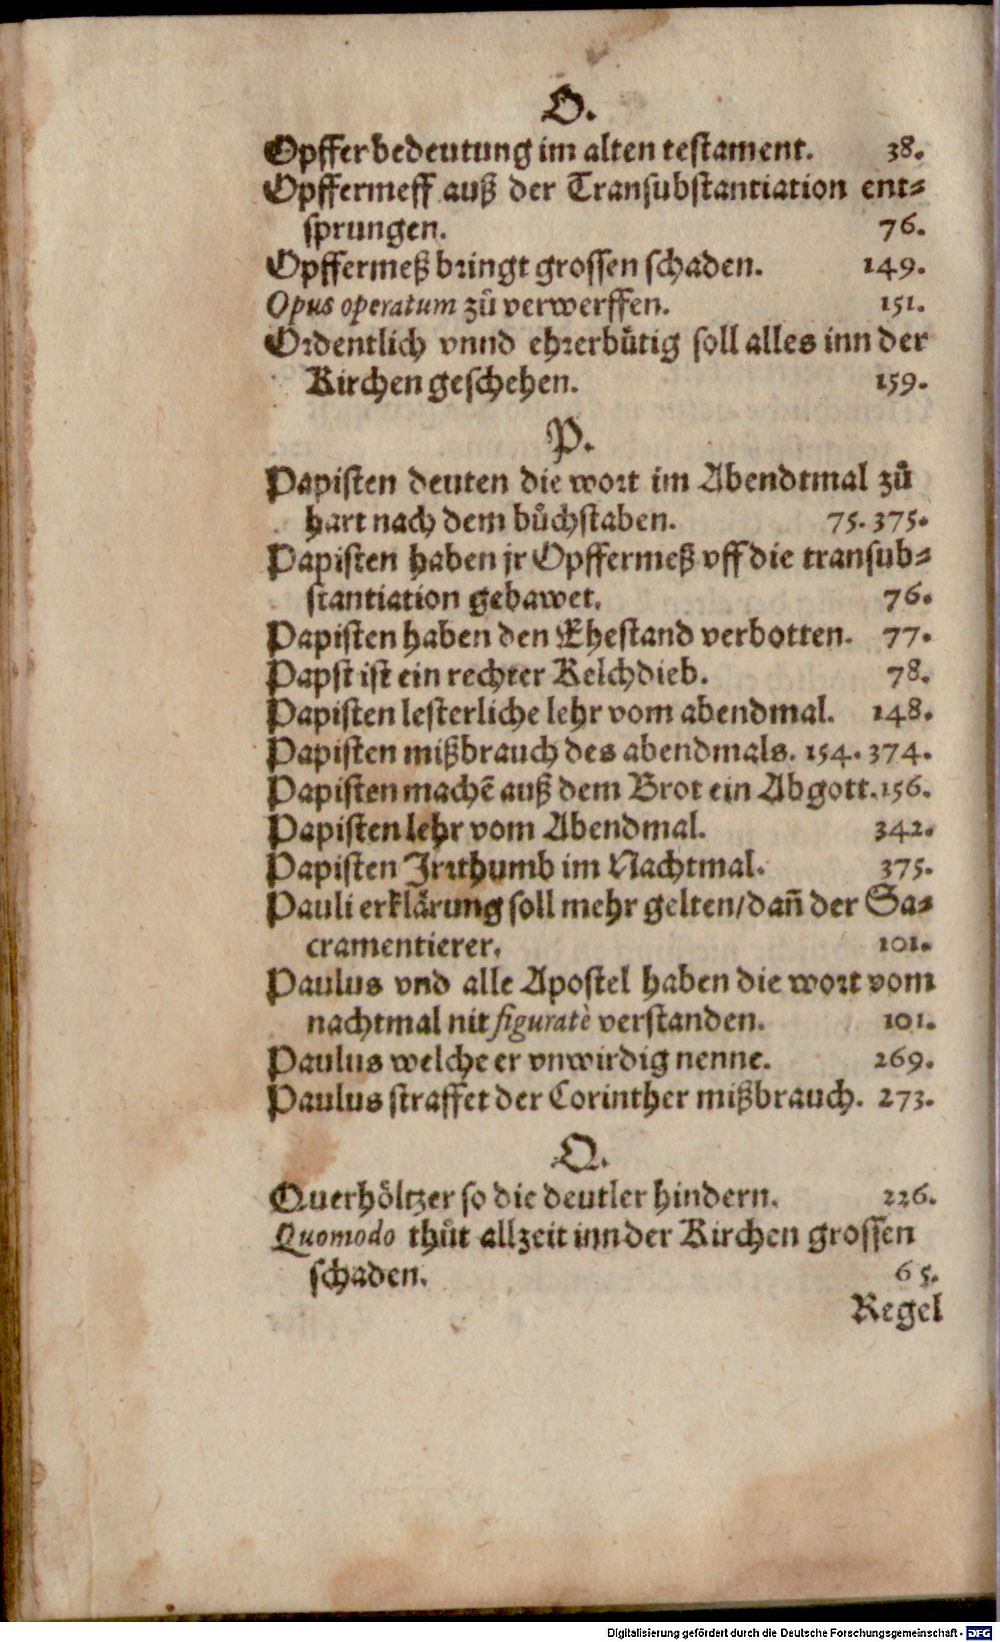 O.
Opffer bedeutung im alten testament. 38.
Opffermeſſ auß der Transubstantiation ent⸗
sprungen. 76.
Opffermeß bringt grossen schaden. 149.
Opus operatum zů verwerffen. 151.
Ordentlich vnnd ehrerbütig soll alles inn der
Kirchen geschehen. 159.
P.
Papisten deuten die wort im Abendtmal zů
hart nach dem bůchstaben. 75. 375.
Papisten haben jr Opffermeß vff die transub⸗
stantiation gebawet. 76.
Papisten haben den Ehestand verbotten. 77.
Papst ist ein rechter Kelchdieb. 78.
Papisten lesterliche lehr vom abendmal. 148.
Papisten mißbrauch des abendmals. 154. 374.
Papisten machē auß dem Brot ein Abgott. 156.
Papisten lehr vom Abendmal. 342.
Papisten Irrthumb im Nachtmal. 375.
Pauli erklärung soll mehr gelten/dañ der Sa⸗
cramentierer. 101.
Paulus vnd alle Apostel haben die wort vom
nachtmal nit figuratè verstanden. 101.
Paulus welche er vnwirdig nenne. 269.
Paulus straffet der Corinther mißbrauch. 273.
Q.
Querhöltzer so die deutler hindern. 226.
Quomodo thůt allzeit inn der Kirchen grossen
schaden. 65.
Regel
Digitalisierung gefördert durch die Deutsche Forschungsgemeinschaft - DFG